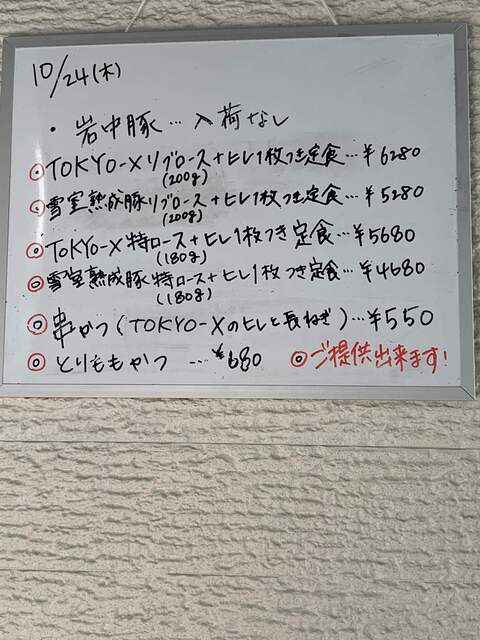 10/24(木)
・岩中豚…入荷なし
◎TOKYO-Xリブロース+ヒレ1枚つき定食…¥6280
(200g)
◎雪室熟成豚リブロース+ヒレ1枚つき定食…¥5280
(200g)
◎TOKYO-X特ロース+ヒレ1枚つき定食…¥5680
(180g)
◎雪室熟成豚特ロース+ヒレ1枚つき定食…¥4680
(180g)
◎串かつ(TOKYO-Xのヒレと長ねぎ)…¥550
◎とりももかつ…¥680
◎ご提供出来ます!